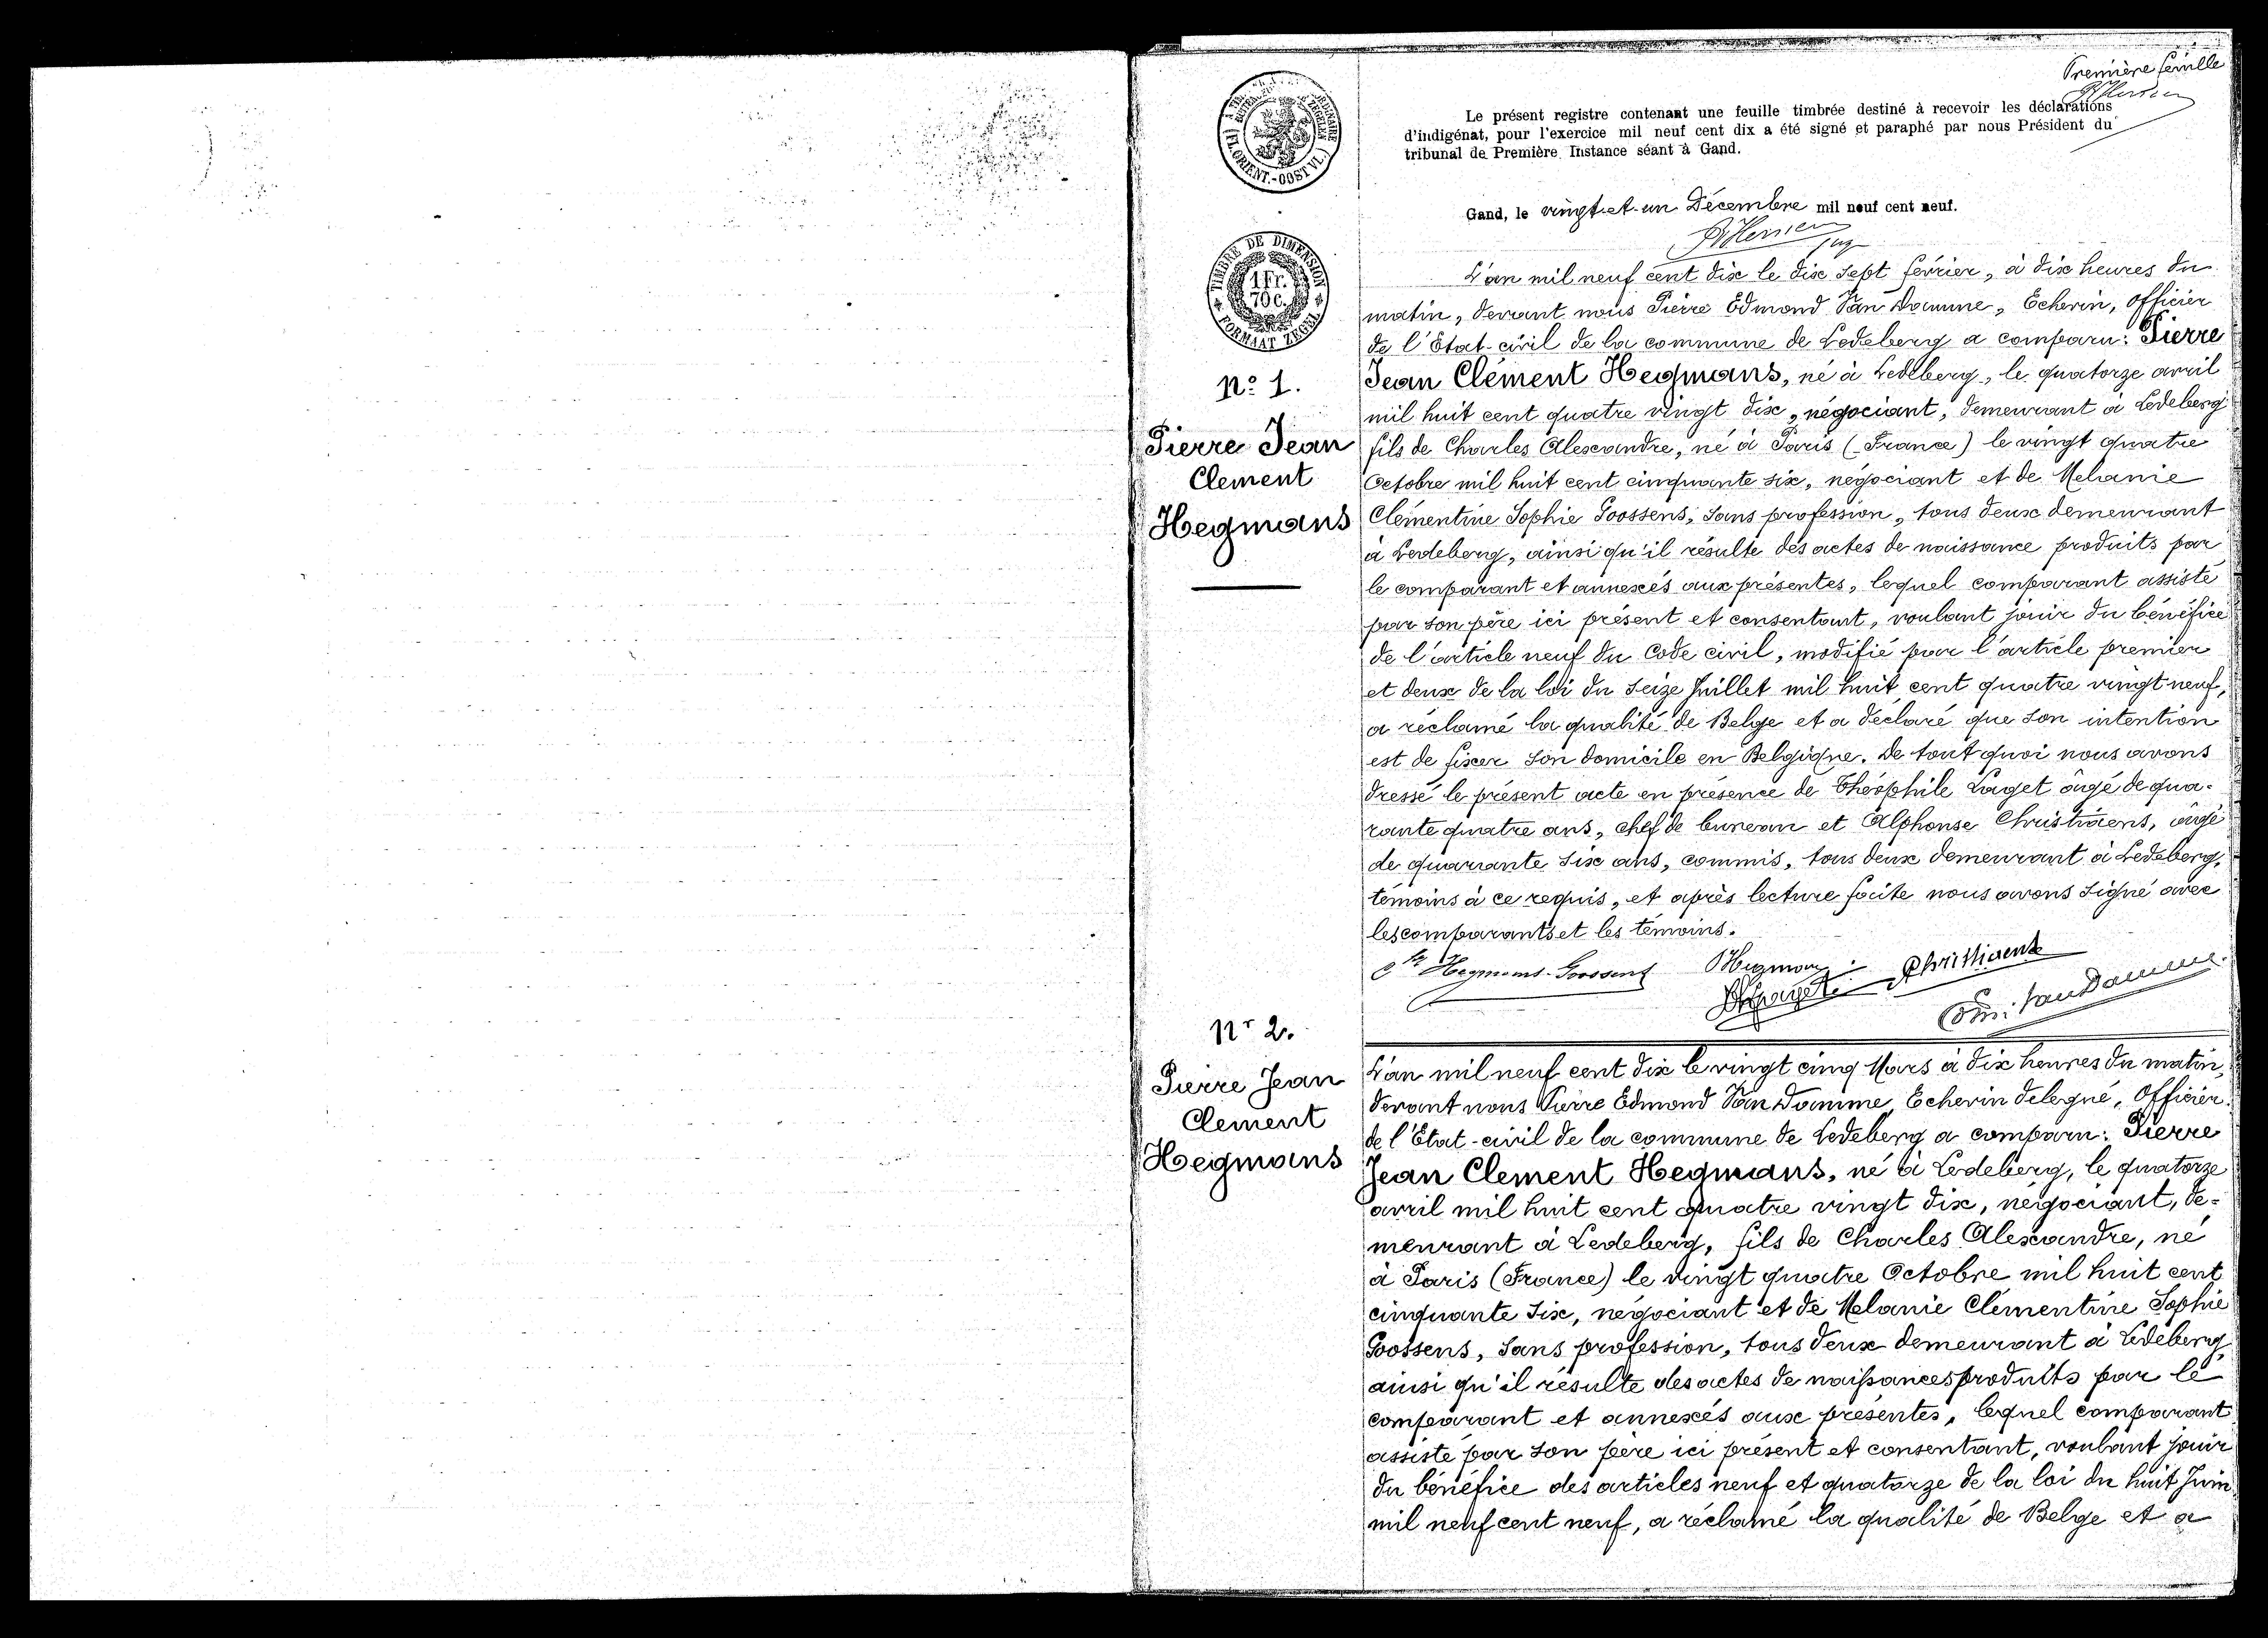 Première feuille
Le présent registre contenant une feuille timbrée destiné à recevoir les déclarations
d'indigénat, pour l'exercice mil neuf cent dix a été signé et paraphé par nous Président du
tribunal de Première Instance séant à Gand.
Gand, le vingt et un Décembre mil neuf cent neuf.
(FL. ORIENT.-OOST VL.)
TIMBRE DE DIMENSION
1 Fr.
70 c.
FORMAAT ZEGEL
No 1.
Pierre Jean
Clement
Hegmans
L'an mil neuf cent dix le dix sept février, à dix heures du
matin, devant nous Pierre Edmond Van Damme, Echevin, Officier
de l'Etat-civil de la commune de Ledeberg a comparu: Pierre
Jean Clément Hegmans, né à Ledeberg, le quatorze avril
mil huit cent quatre vingt dix, négociant, demeurant à Ledeberg
fils de Charles Alexandre, né à Paris (France) le vingt quatre
Octobre mil huit cent cinquante six, négociant et de Melanie
Clémentine Sophie Goossens, sans profession, tous deux demeurant
à Ledeberg, ainsi qu'il résulte des actes de naissance produits par
le comparant et annexés aux présentes, lequel comparant assisté
par son père ici présent et consentant, voulant jouir du bénéfice
de l'article neuf du Code civil, modifié par l'article premier
et deux de la loi du seize Juillet mil huit cent quatre vingt neuf,
a réclamé la qualité de Belge et a déclaré que son intention
est de fixer son domicile en Belgique. De tout quoi nous avons
dressé le présent acte en présence de Théophile Laget âgé de qua-
rante quatre ans, chef de bureau et Alphonse Christiaens, âgé
de quarante six ans, commis, tous deux demeurant à Ledeberg,
témoins à ce requis, et après lecture faite nous avons signé avec
les comparants et les témoins.
Hegmans-Goossens Hegmans Christiaens
Laget
Edm. Van Damme
Nr 2.
Pierre Jean
Clement
Hegmans
L'an mil neuf cent dix le vingt cinq Mars à dix heures du matin,
devant nous Pierre Edmond Van Damme, Echevin delegué, Officier
de l'Etat-civil de la commune de Ledeberg a comparu: Pierre
Jean Clement Hegmans, né à Ledeberg, le quatorze
avril mil huit cent quatre vingt dix, négociant, de=
meurant à Ledeberg, fils de Charles Alexandre, né
à Paris (France) le vingt quatre Octobre mil huit cent
cinquante six, négociant et de Melanie Clémentine Sophie
Goossens, sans profession, tous deux demeurant à Ledeberg
ainsi qu'il résulte des actes de naissances produits par le
comparant et annexés aux présentes, lequel comparant
assisté par son père ici présent et consentant, voulant jouir
du bénéfice des articles neuf et quatorze de la loi du huit Juin
mil neuf cent neuf, a réclamé la qualité de Belge et a